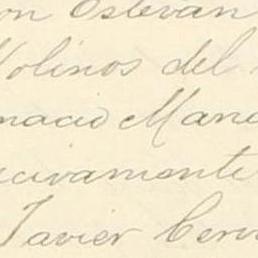 on Estevan
Molinos del
nacio Man
civamente
Javier Cerv